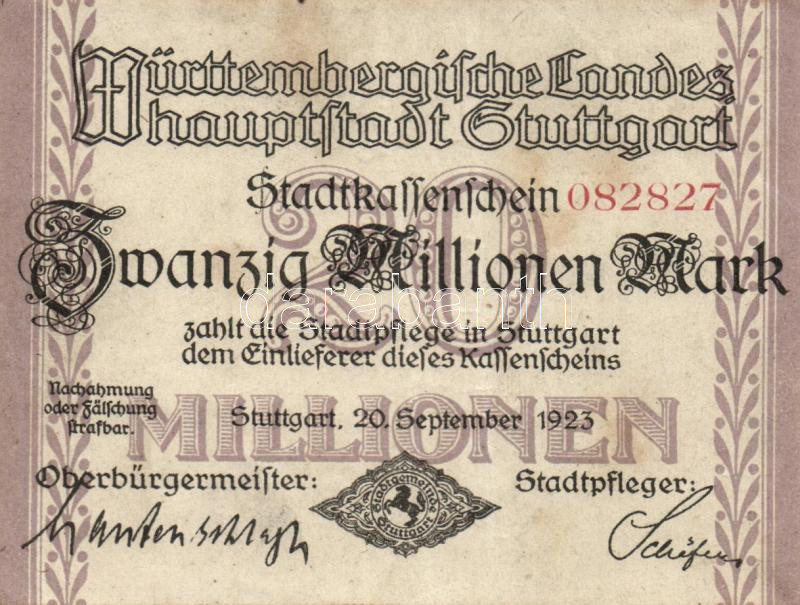 Württembergische Landes
hauptstadt Stuttgart
Stadtkassenschein 082827
20
Zwanzig Millionen Mark
zahlt die Stadtpflege in Stuttgart
dem Einlieferer dieses Kassenscheins
Nachahmung
oder Fälschung
strafbar.
MILLIONEN
Stuttgart, 20. September 1923
Oberbürgermeister:
Stadtpfleger:
Stadtgemeinde
Stuttgart
Lautenschlager
darabanth